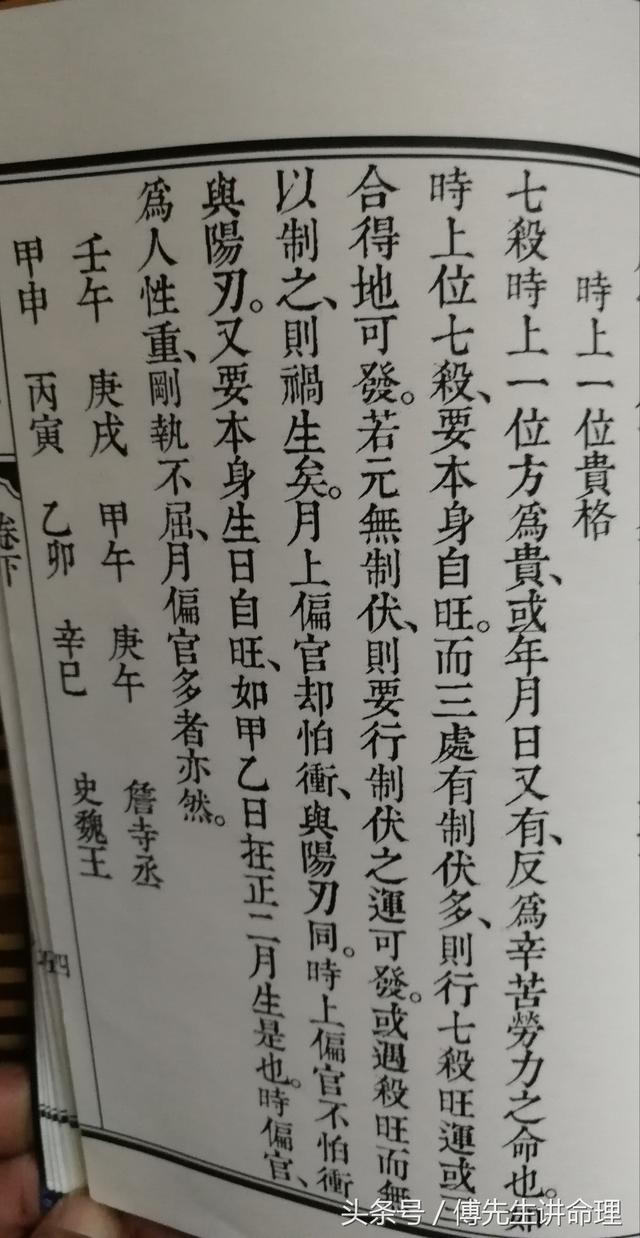 時上一位貴格
七殺時上一位方爲貴、或年月日又有、反爲辛苦勞力之命也。如
時上位七殺、要本身自旺。而三處有制伏多、則行七殺旺運或
合得地可發。若元無制伏、則要行制伏之運可發。或遇殺旺而無
以制之、則禍生矣。月上偏官却怕衝、與陽刃同。時上偏官不怕衝
與陽刃。又要本身生日自旺、如甲乙日在正二月生是也。時偏官、
爲人性重、剛執不屈、月偏官多者亦然。
壬午 庚戌 甲午 庚午 詹寺丞
甲申 丙寅 乙卯 辛巳 史魏王
卷下
四
头条号 / 傅先生讲命理